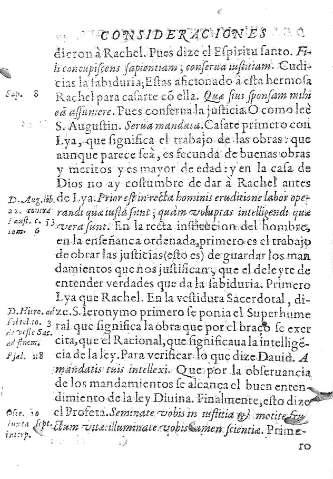 CONSIDERACIONES
dieron à Rachel. Pues dize el Espiritu santo. Fili
concupiscens sapientiam; conserua iustitiam. Cudi-
cias la sabiduria; Estas aficionado à esta hermosa
Sap. 8
Rachel para casarte cō ella. Quæ sius sponsam mihi
eā assumere. Pues conserua la justicia. O como leè
S. Augustin. Serua mandata. Casate primero con
Lya, que significa el trabajo de las obras: que
aunque parece feà, es fecunda de buenas obras
y meritos y es mayor de edad: y en la casa de
Dios no ay costumbre de dar à Rachel antes
D. Aug. lib.
de Lya. Prior est in recta hominis eruditione labor ope-
randi quæ iusta sunt; quàm voluptas intelligendi quæ
tom. 6
vera sunt. En la recta institucion del hombre,
en la enseñança ordenada, primero es el trabajo
de obrar las justicias (esto es) de guardar los man-
damientos que nos justifican; que el deleyte de
entender verdades que da la sabiduria. Primero
Lya que Rachel. En la vestidura Sacerdotal, di-
D. Hiero. ad
ze S. Ieronymo primero se ponia el Superhume
ral que significa la obra que por el braço se exer
cita, que el Racional, que significaua la inteligē-
ad finem.
cia de la ley. Para verificar lo que dize Dauid. A
Psal. 118
mandatis tuis intellexi. Que por la obseruancia
de los mandamientos se alcança el buen enten-
dimiento de la ley Diuina. Finalmente, esto dixo
Osee. 10
el Profeta. Seminate vobis in iustitia & metite fru-
iuxta sept.
ctum vitæ: illuminate vobis lumen scientiæ. Prime-
interp.
ro